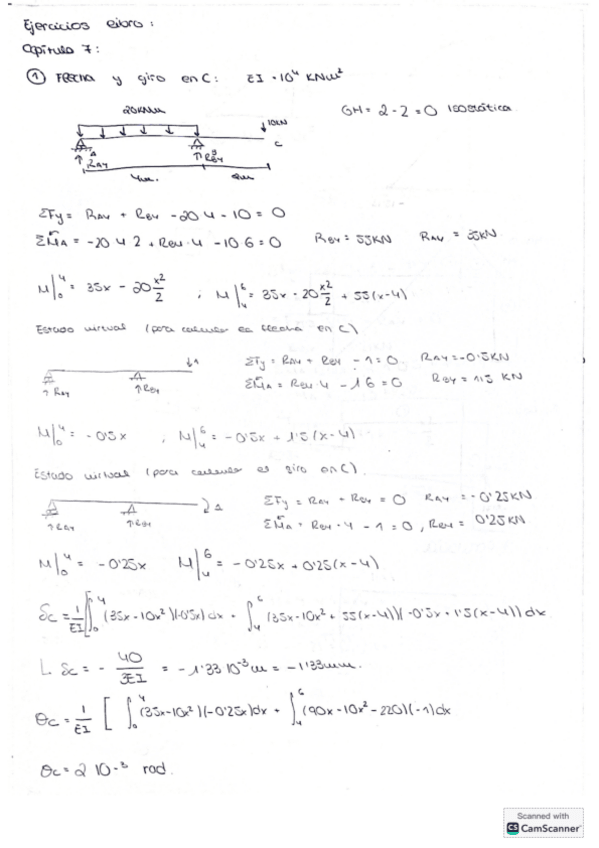 Ejercicios libro:
Capítulo 7:
① Flecha y giro en C: EI = 10⁴ KNm²
20KN/m
10KN
GH = 2-2 = 0 Isostática.
A B C
↑ RAY ↑ RBY
4m. 2m
ΣFy = RAY + RBY - 20 4 - 10 = 0
ΣMA = -20 4 2 + RBY · 4 - 10 6 = 0 RBY = 55KN RAY = 35KN
M|₀⁴ = 35x - 20 x²/2 ; M|₄⁶ = 35x - 20 x²/2 + 55(x-4)
Estado virtual (para calcular la flecha en C)
↓1 ΣFy = RAY + RBY - 1 = 0. RAY = -0'5KN
↑ RAY ↑ RBY ΣMA = RBY 4 - 1 6 = 0 RBY = 1'5 KN
M|₀⁴ = -0'5x , M|₄⁶ = -0'5x + 1'5(x-4)
Estado virtual (para calcular el giro en C).
1 ΣFy = RAY + RBY = 0 RAY = -0'25KN
↑ RAY ↑ RBY ΣMA = RBY · 4 - 1 = 0, RBY = 0'25KN
M|₀⁴ = -0'25x M|₄⁶ = -0'25x + 0'25(x-4)
δc = 1/EI [∫₀⁴ (35x-10x²)(-0'5x) dx + ∫₄⁶ (35x-10x² + 55(x-4))(-0'5x + 1'5(x-4)) dx
L. δc = - 40/3EI = -1'33 10⁻³ m = -1'33mm.
θc = 1/EI [ ∫₀⁴ (35x-10x²)(-0'25x)dx + ∫₄⁶ (90x-10x²-220)(-1)dx
θc = 2 10⁻³ rad.
Scanned with
CS CamScanner